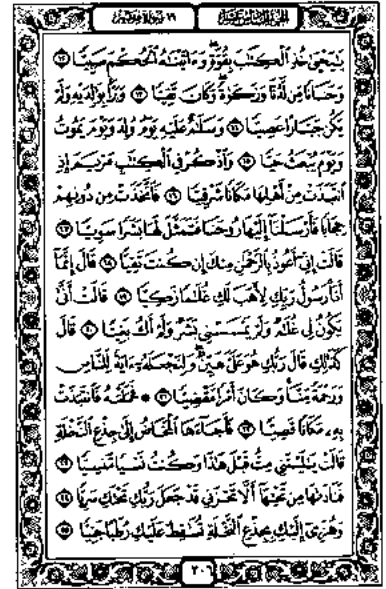 الجزء السادس عشر
١٩ سورة مريم
يَٰيَحْيَىٰ خُذِ ٱلْكِتَٰبَ بِقُوَّةٍ وَءَاتَيْنَٰهُ ٱلْحُكْمَ صَبِيًّا ١٢
وَحَنَانًا مِّن لَّدُنَّا وَزَكَوٰةً وَكَانَ تَقِيًّا ١٣ وَبَرًّۢا بِوَٰلِدَيْهِ وَلَمْ
يَكُن جَبَّارًا عَصِيًّا ١٤ وَسَلَٰمٌ عَلَيْهِ يَوْمَ وُلِدَ وَيَوْمَ يَمُوتُ
وَيَوْمَ يُبْعَثُ حَيًّا ١٥ وَٱذْكُرْ فِي ٱلْكِتَٰبِ مَرْيَمَ إِذِ
ٱنتَبَذَتْ مِنْ أَهْلِهَا مَكَانًا شَرْقِيًّا ١٦ فَٱتَّخَذَتْ مِن دُونِهِمْ
حِجَابًا فَأَرْسَلْنَآ إِلَيْهَا رُوحَنَا فَتَمَثَّلَ لَهَا بَشَرًا سَوِيًّا ١٧
قَالَتْ إِنِّىٓ أَعُوذُ بِٱلرَّحْمَٰنِ مِنكَ إِن كُنتَ تَقِيًّا ١٨ قَالَ إِنَّمَآ
أَنَا۠ رَسُولُ رَبِّكِ لِأَهَبَ لَكِ غُلَٰمًا زَكِيًّا ١٩ قَالَتْ أَنَّىٰ
يَكُونُ لِى غُلَٰمٌ وَلَمْ يَمْسَسْنِى بَشَرٌ وَلَمْ أَكُ بَغِيًّا ٢٠ قَالَ
كَذَٰلِكِ قَالَ رَبُّكِ هُوَ عَلَىَّ هَيِّنٌ وَلِنَجْعَلَهُۥٓ ءَايَةً لِّلنَّاسِ
وَرَحْمَةً مِّنَّا وَكَانَ أَمْرًا مَّقْضِيًّا ٢١ * فَحَمَلَتْهُ فَٱنتَبَذَتْ
بِهِۦ مَكَانًا قَصِيًّا ٢٢ فَأَجَآءَهَا ٱلْمَخَاضُ إِلَىٰ جِذْعِ ٱلنَّخْلَةِ
قَالَتْ يَٰلَيْتَنِى مِتُّ قَبْلَ هَٰذَا وَكُنتُ نَسْيًا مَّنسِيًّا ٢٣
فَنَادَىٰهَا مِن تَحْتِهَآ أَلَّا تَحْزَنِى قَدْ جَعَلَ رَبُّكِ تَحْتَكِ سَرِيًّا ٢٤
وَهُزِّىٓ إِلَيْكِ بِجِذْعِ ٱلنَّخْلَةِ تُسَٰقِطْ عَلَيْكِ رُطَبًا جَنِيًّا ٢٥
٣٠٦